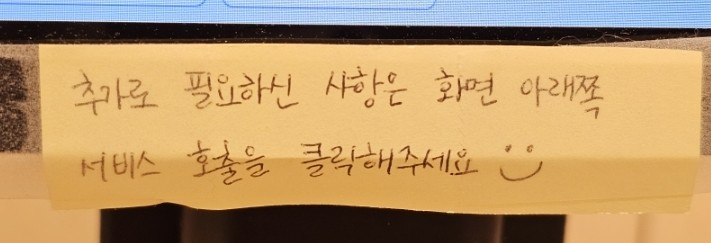 추가로 필요하신 사항은 화면 아래쪽
서비스 호출을 클릭해주세요 :)